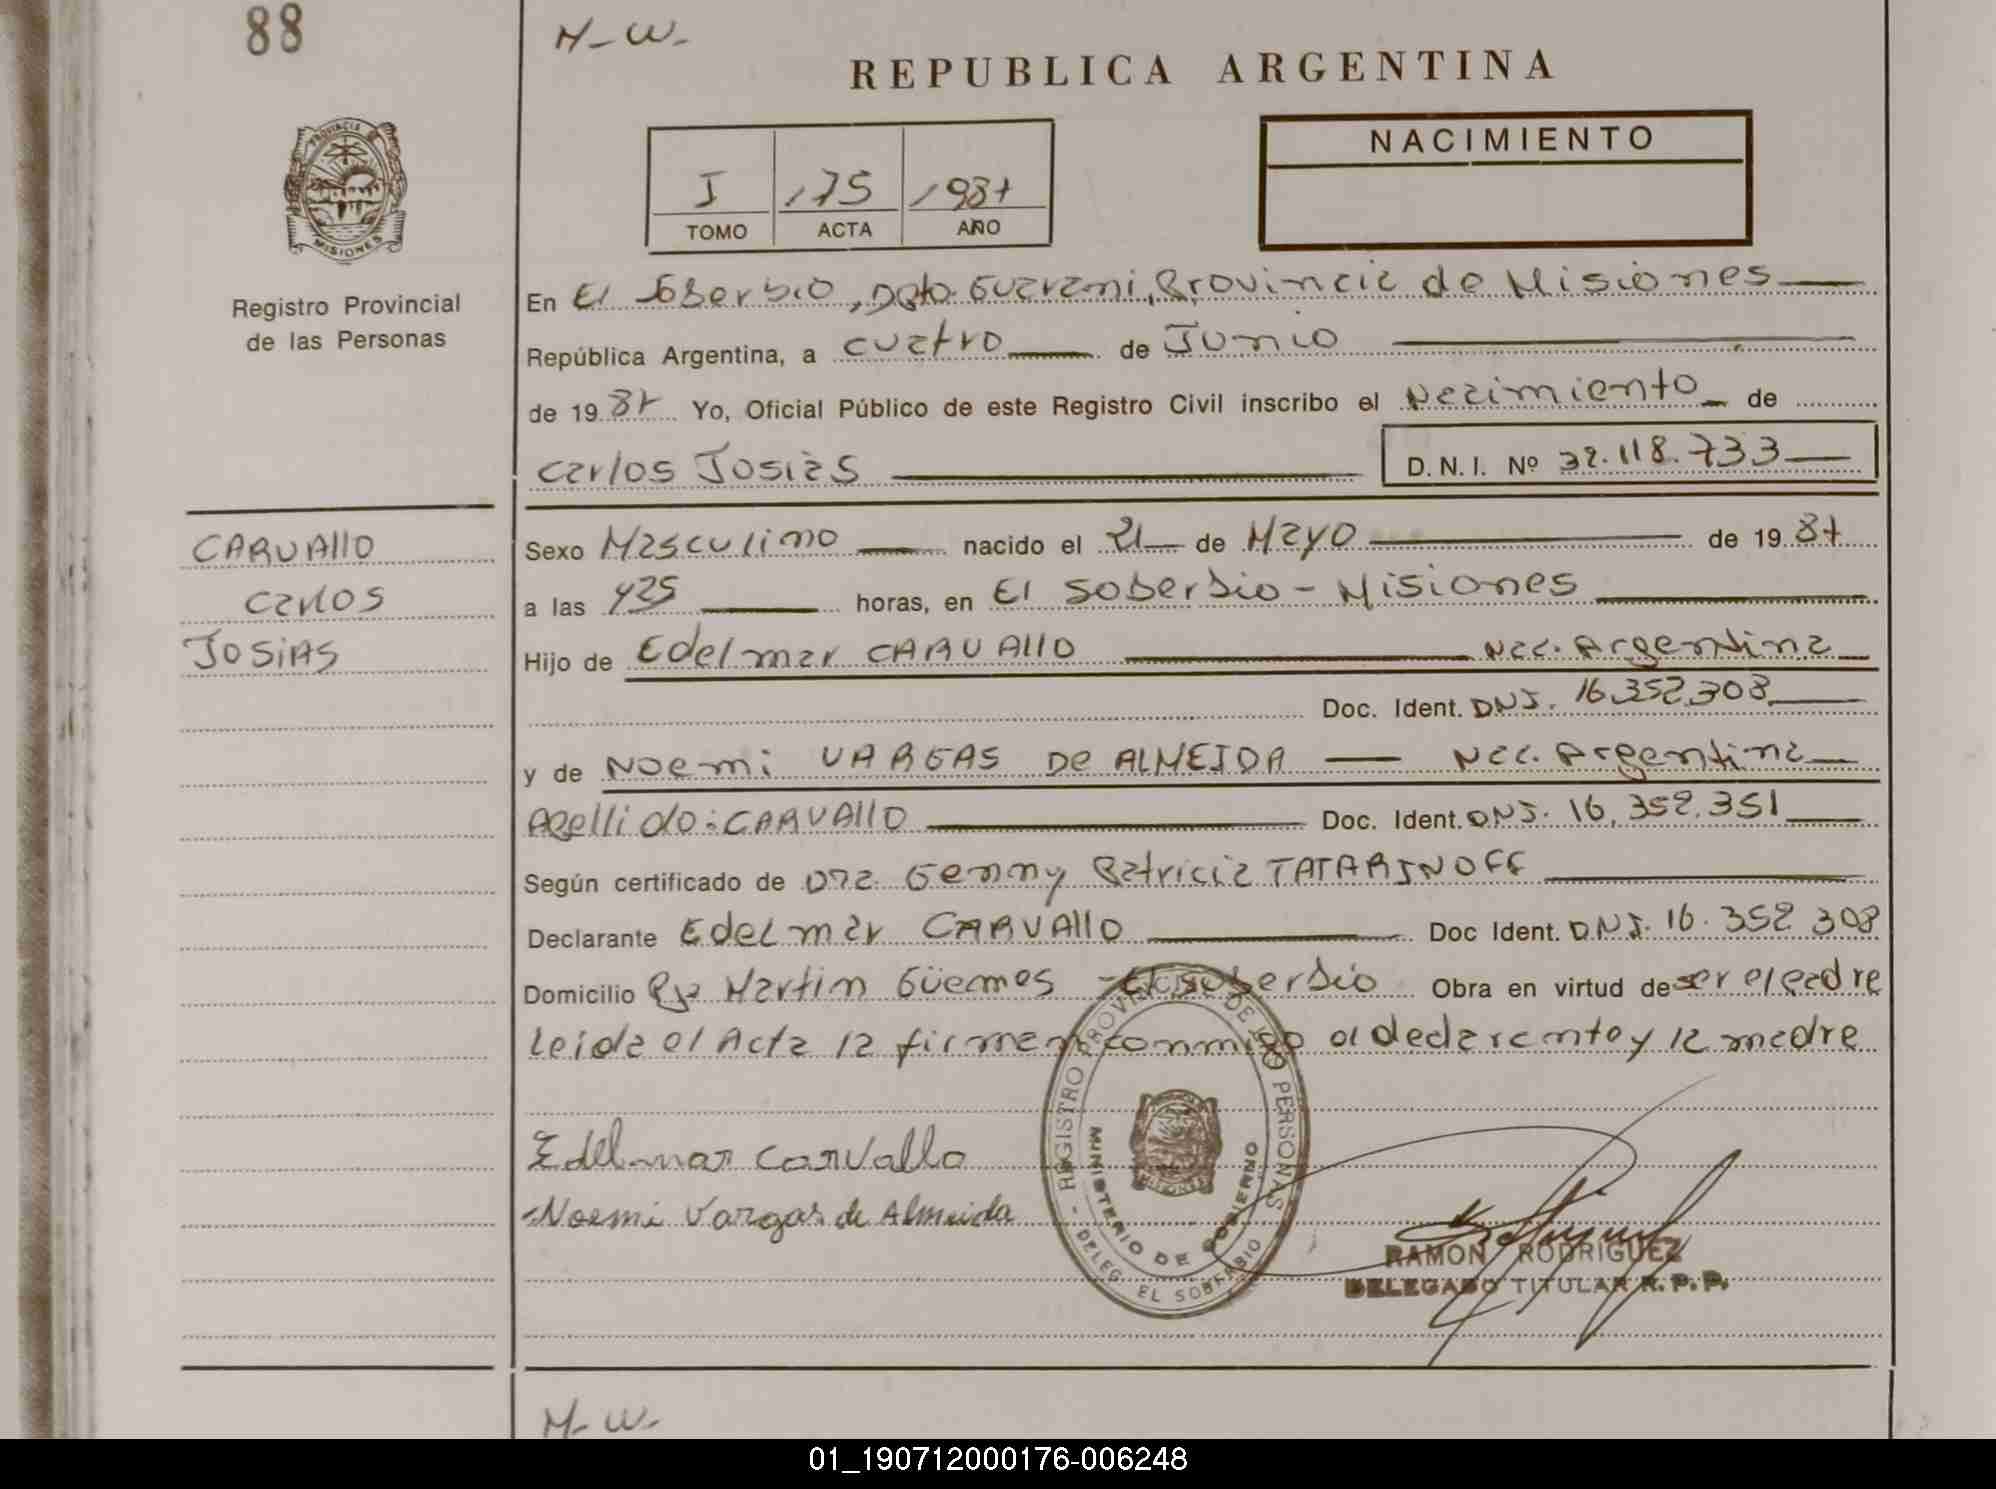 88
M-W-
REPUBLICA ARGENTINA
NACIMIENTO
I 175 1987
TOMO ACTA AÑO
PROVINCIA DE MISIONES
Registro Provincial
de las Personas
En El Soberbio, Dpto. Guarani, Provincia de Misiones
República Argentina, a cuatro de Junio
de 1987 Yo, Oficial Público de este Registro Civil inscribo el Nacimiento de
Carlos Josías D.N.I. Nº 32.118.733
CARVAllO
Carlos
JOSIAS
Sexo Masculino nacido el 21 de Mayo de 1987
a las 425 horas, en El Soberbio - Misiones
Hijo de Edelmar CARVAllO Nac. Argentina
Doc. Ident. DNI. 16.352.308
y de Noemi VARGAS De ALMEIDA Nac. Argentina
Apellido: CARVAllO Doc. Ident. DNI. 16.352.351
Según certificado de Dra. Genny Patricia TATARINOFF
Declarante Edelmar CARVAllO Doc Ident. DNI. 16.352 308
Domicilio Pje Martin Güemes - El Soberbio Obra en virtud de ser el padre
Leida el Acta la firman conmigo el declarante y la madre
Edelmar Carvallo
Noemi Vargas de Almeida
REGISTRO PROVINCIAL DE LAS PERSONAS
MINISTERIO DE GOBIERNO
- DELEG. EL SOBERBIO -
RAMON RODRIGUEZ
DELEGADO TITULAR R.P.P.
M-W-
01_190712000176-006248